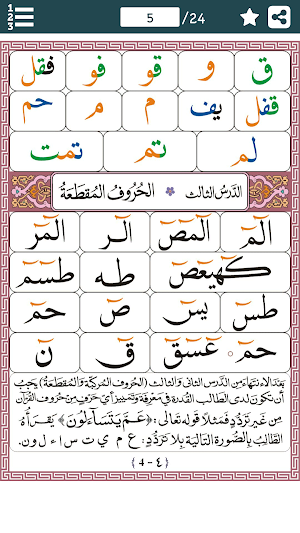 1
2
3
5 /24
ق و قو فو فقل
قفل يف م م حم
لم تم تمت
الدَّرسُ الثالث الحُرُوفُ المُقطَّعَةُ
الٓمٓ الٓمٓصٓ الٓرٰ الٓمٓرٰ
كٓهيعٓصٓ طه طسٓمٓ
طسٓ يسٓ صٓ حمٓ
حمٓ عٓسٓقٓ قٓ نٓ
بَعْدَ الانتهاء مِن الدَّرس الثاني والثالث (الحُروف المُركَّبة وَالمُقطعَة) يَجبُ
أن تكون لدى الطالب القُدرة في مَعرفة وَتمييز أيّ حَرفٍ مِن حُروف القُرآن
مِن غَير تَرَدُّدٍ فَمَثلاً قوله تعالى: ﴿عَمَّ يَتَسَآءَلُونَ﴾ يَقرَأهُ
الطَّالِبُ بالصُّورة التَّالية بلا تَرَدُّدٍ: ع م ي ت س ا ء ل و ن.
( 4 - ٤ )